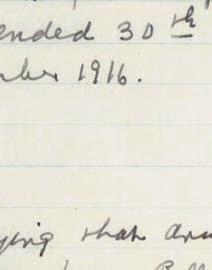 ended 30th
mber 1916.
ying that